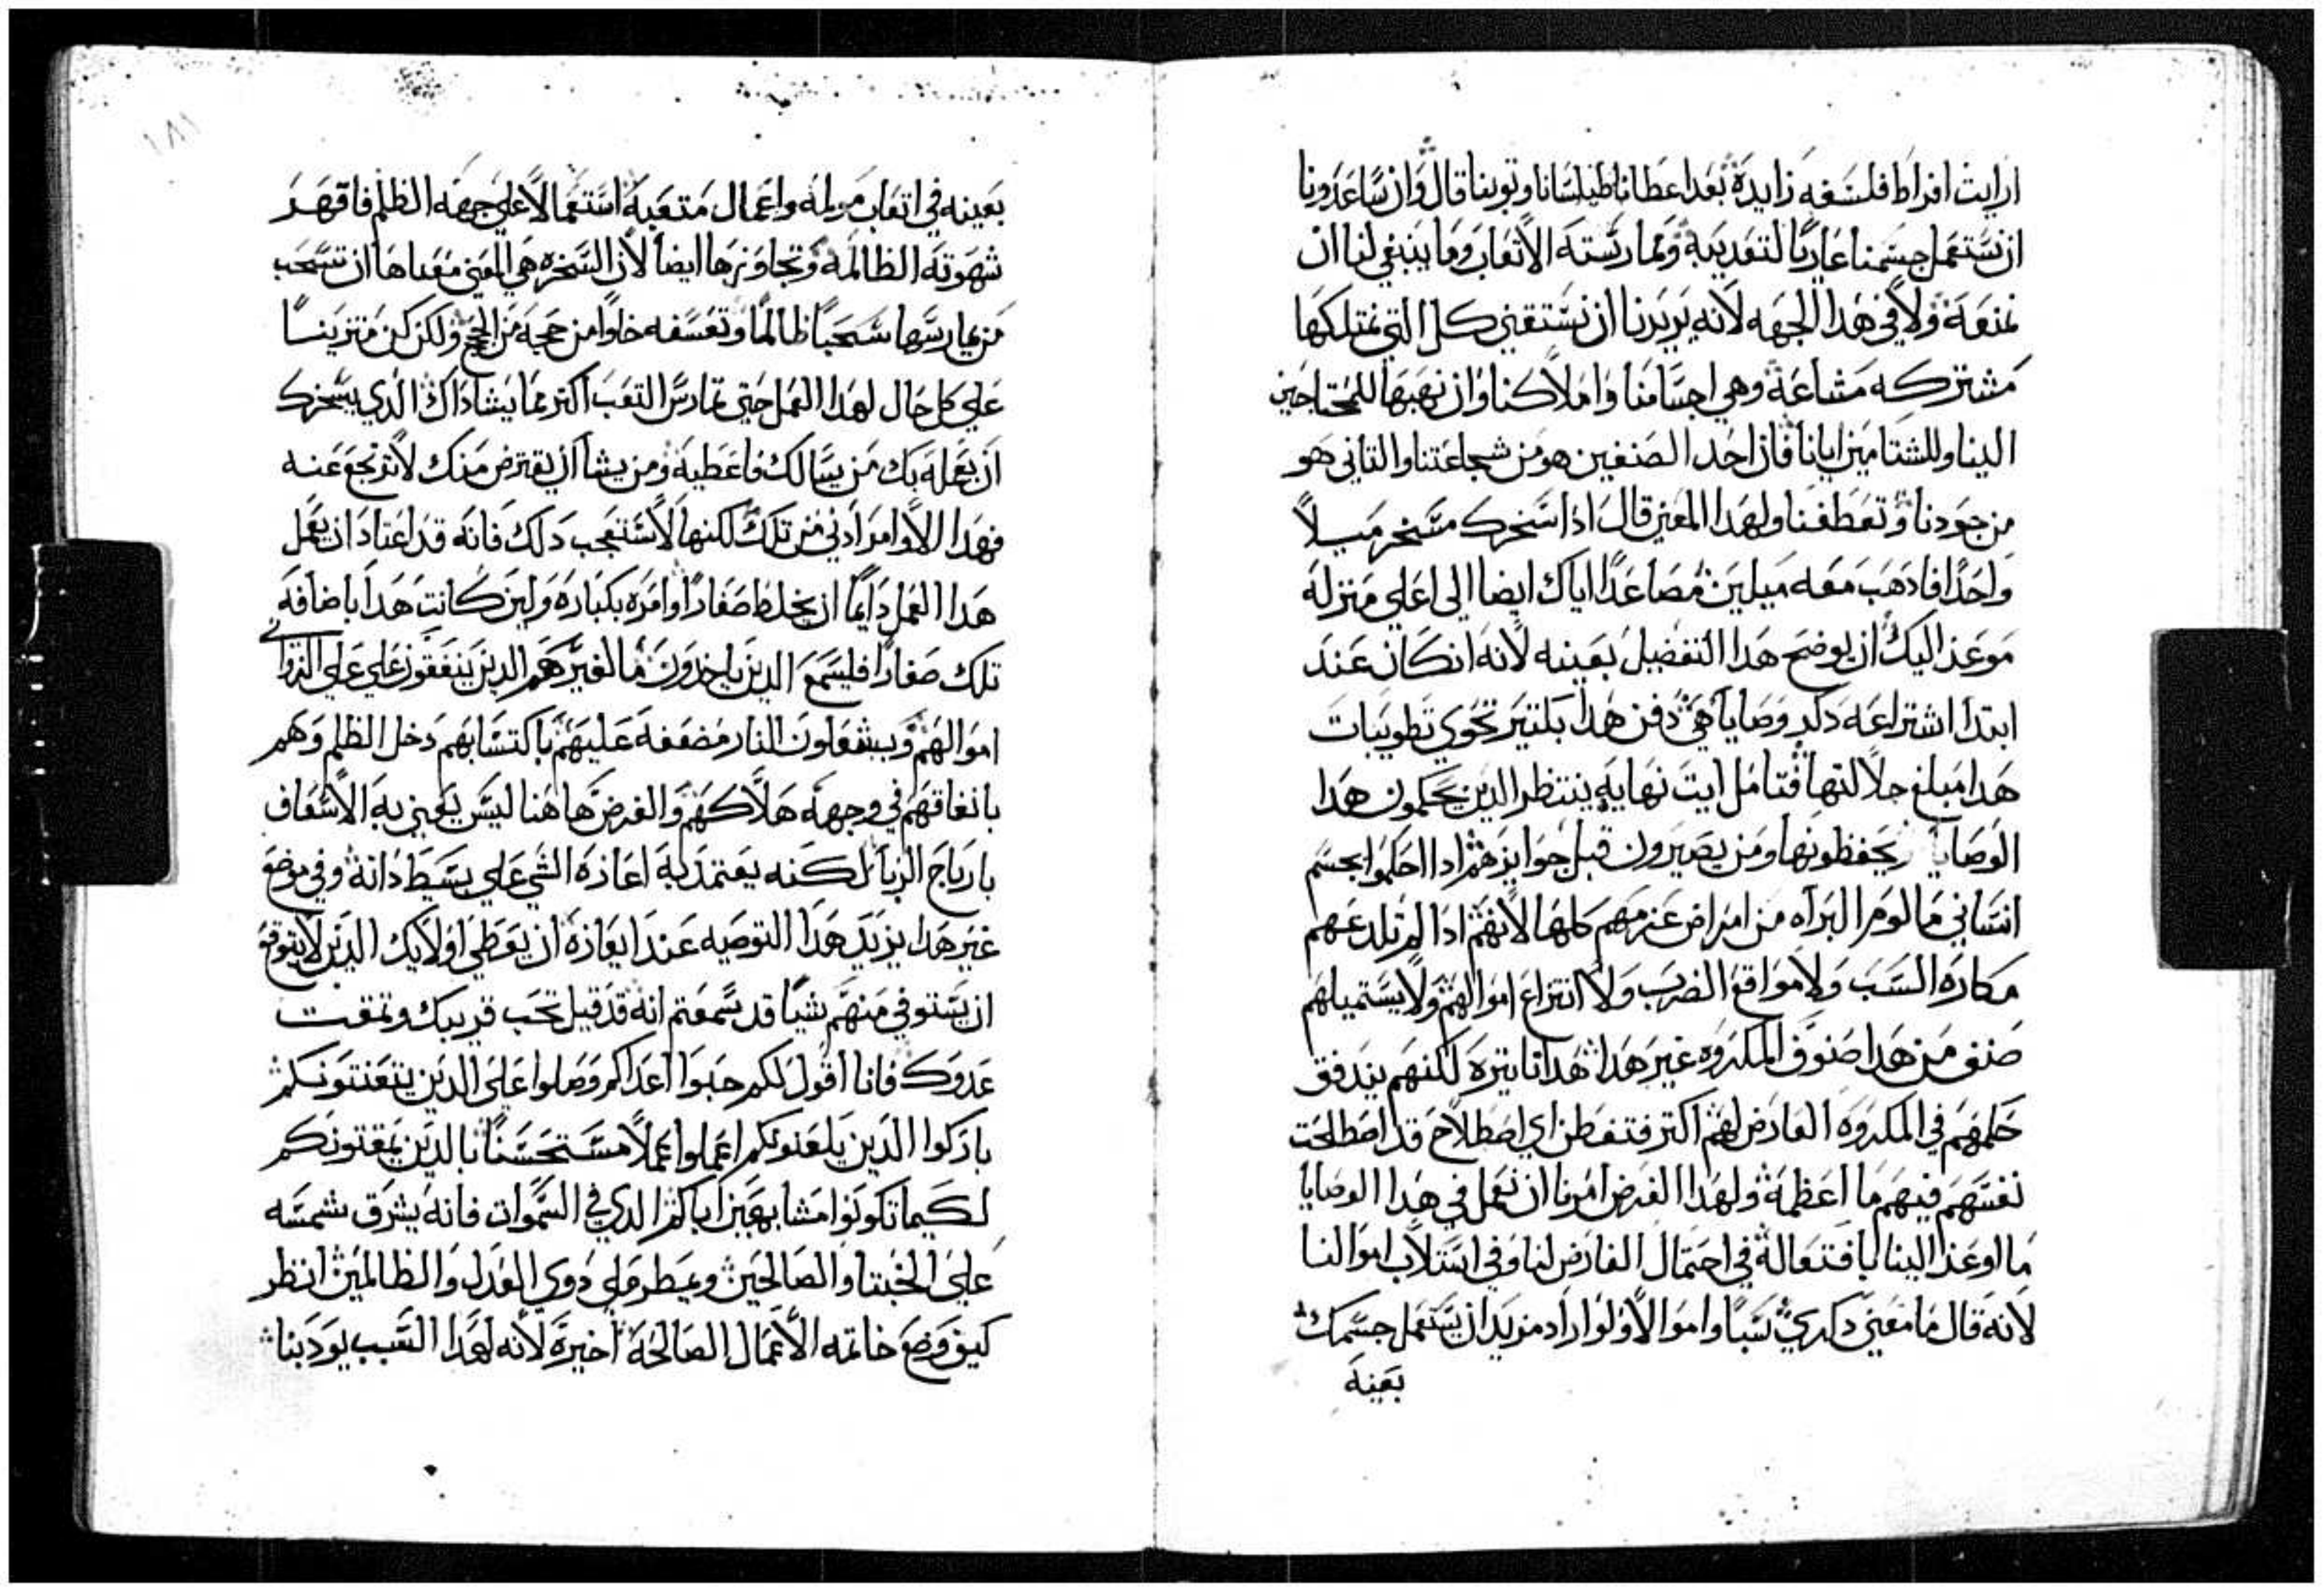 ارايت افراط فلسفه زايدة بعد اعطانا طيلساننا وتوبنا قال وان ساعدونا
ان نستعمل جسمنا عاريا لتعديبة وممارسته الاتعاب وما ينبغي لنا ان
نمنعه ولا في هدا الجهه لانه يريدنا ان نستقني كل التي نمتلكها
مشتركه مشاعة وهي اجسامنا واملاكنا وان نهبها للمحتاجين
الينا وللشتامين ايانا فان احد الصنفين هو من شجاعتنا والتاني هو
من جودنا وتعطفنا ولهدا المعني قال ادا سخرك مسخر ميلا
واحدا فادهب معه ميلين مصاعدا اياك ايضا الي اعلي منزله
موعز اليك ان توضح هدا التفضيل بعينه لانه ان كان عند
ابتدا اشتراعه دكر وصايا هي دون هدا بكتير تحوي تطويبات
هدا مبلغ جلالتها فتامل ايت نهايه ينتظر الدين يحكمون هدا
الوصايا يحفظونها ومن يصيرون قبل جوايزهم ادا احكموا بجسم
انساني مالوم البراه من امراض عزمهم كلها لانهم ادا لم تلدعهم
مكاره السب ولا مواقع الضرب ولا انتزاع اموالهم ولا يستميلهم
صنف من هدا صنوف المكروه غير هدا هدانا يتره لكنهم يتدفق
حلمهم في المكروه العارض لهم اكتر فتفطن اي اصطلاح قد اصطلحت
نفسهم فيهم ما اعظمة ولهدا الغرض امرنا ان نعمل في هدا الوصايا
ما اوعز الينا بافتعاله في احتمال العارض لنا وفي استلاب اموالنا
لانه قال ما معني دكري سبا واموالا ولو اراد مزيد ان يستعمل جسمك
بعينه
بعينه في اتعاب مولمه واعمال متعبة استعمالا علي جهه الظلم فاقهر
شهوته الظالمه وتجاوزها ايضا لان السخره هي المعني معناها ان تسحب
من يمارسها سحبا ظالما وتعسفه خلوا من حجه من الحجج ولكن كن متزينا
علي كل حال لهدا العمل حتي تمارس التعب اكتر مما يشا داك الدي يسخرك
ان يعمله بك من يسالك فاعطيه ومن يشا ان يقترض منك لا ترجع عنه
فهدا الاوامر ادني من تلك لكنها لا تستعجب دلك فانه قد اعتاد ان يعمل
هدا العمل دايما ان يخلط صغار اوامره بكباره ولين كانت هدا باضافه
تلك صغارا فليسمع الدين ياخدون مال غيرهم الدين ينفقون علي علي الزواني
اموالهم ويشعلون النار مضعفه عليهم باكتسابهم دخل الظلم وهم
بانفاقهم في وجهه هلاكهم والغرض هاهنا ليس يعني به الاسعاف
بارباح الربا لكنه يعتمد به اعارة الشي علي بسيط داته وفي موضع
غير هدا يزيد هدا التوصيه عند ايعازه ان يعطي اولايك الدين لا يتوقع
ان يستوفي منهم شيا قد سمعتم انه قد قيل تحب قريبك وتمقت
عدوك فانا اقول لكم حبوا اعداكم وصلوا علي الدين يتعنتونكم
باركوا الدين يلعنونكم اعملوا عملا مستحسنا بالدين يمقتونكم
لكيما تكونوا مشابهين اباكم الدي في السموات فانه يشرق شمسه
علي الخبتا والصالحين ويمطر علي دوي العدل والظالمين انظر
كيف وضع خاتمه الاعمال الصالحة اخيرة لانه لهدا السبب يودبنا